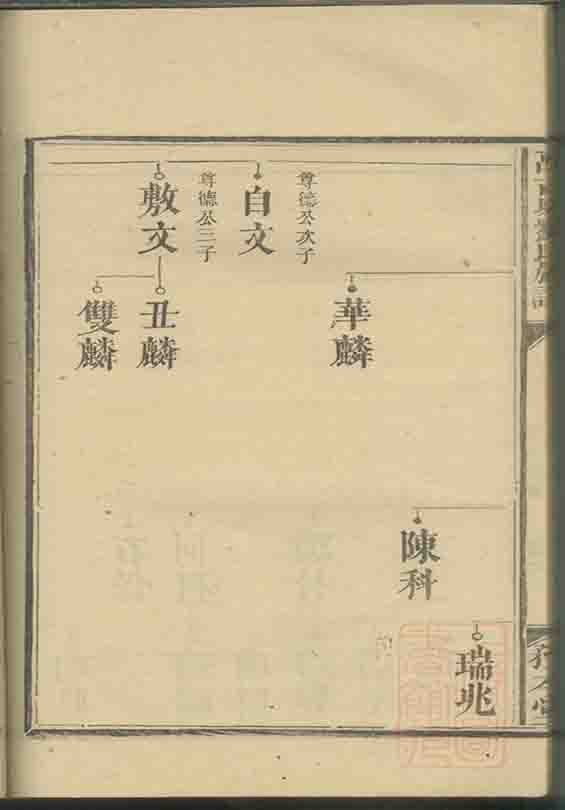 尊德公次子
自文
尊德公三子
敷文
華麟
丑麟
雙麟
陳科
瑞兆